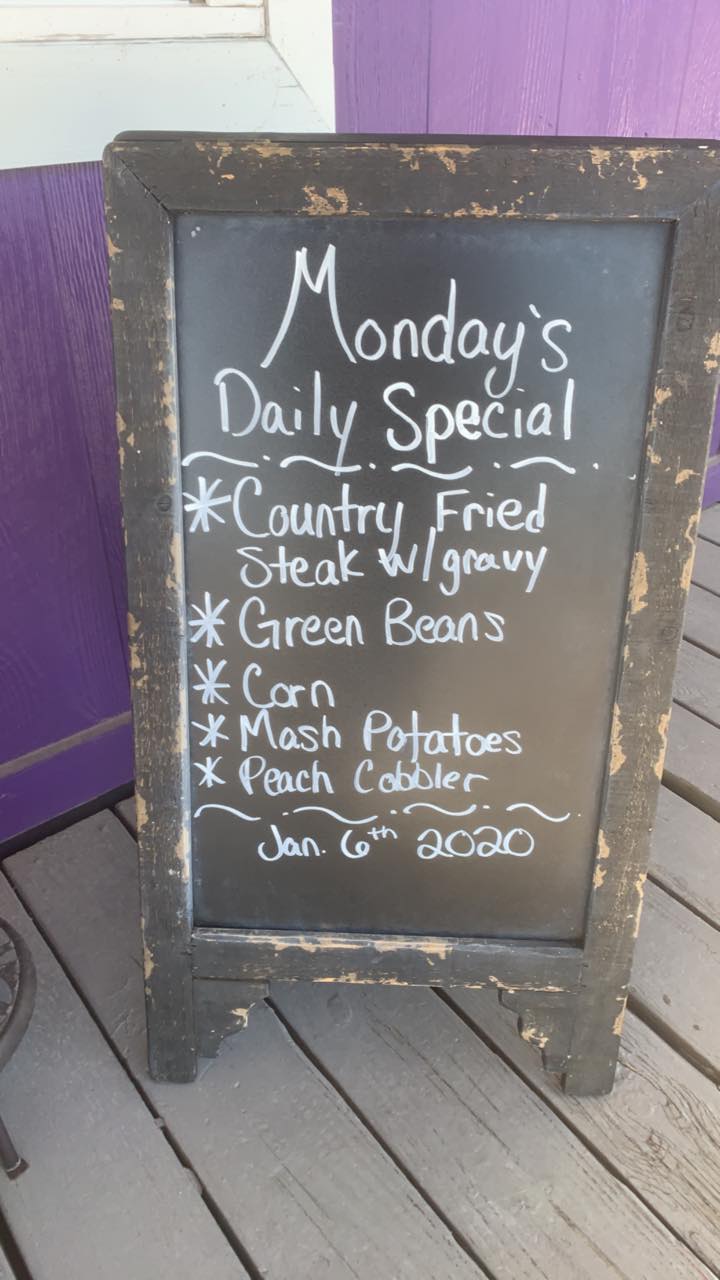 Monday's
Daily Special
* Country Fried
Steak w/gravy
* Green Beans
* Corn
* Mash Potatoes
* Peach Cobbler
Jan. 6th 2020